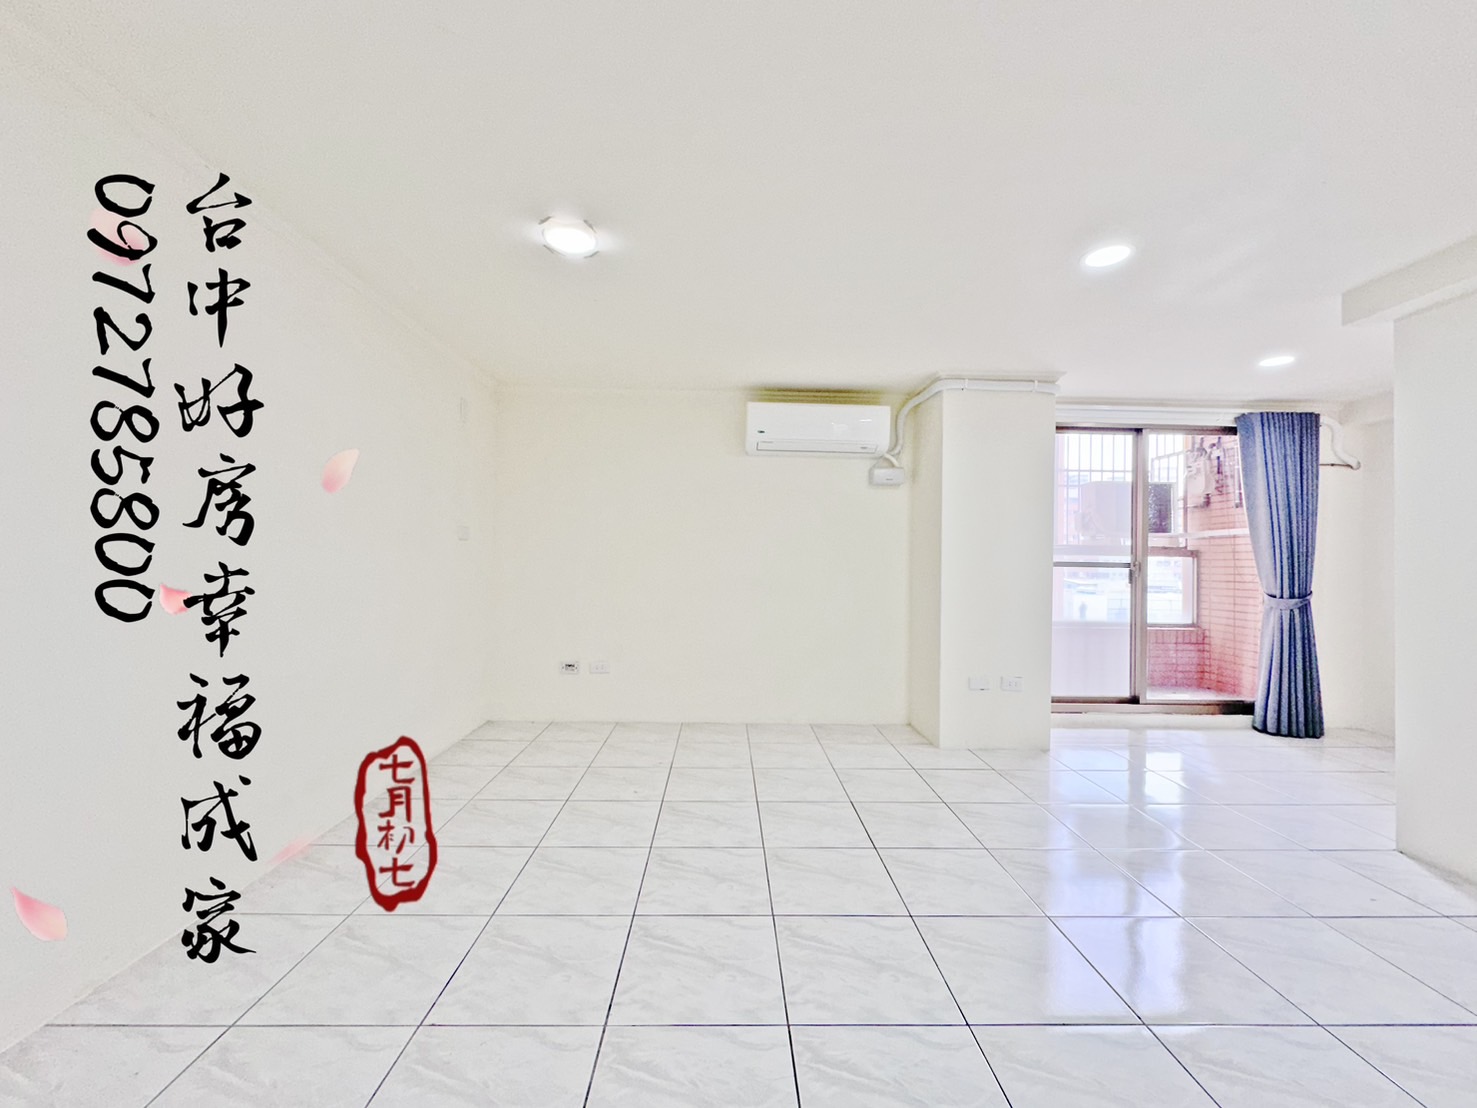 台中好房幸福成家
0972785800
七月初七